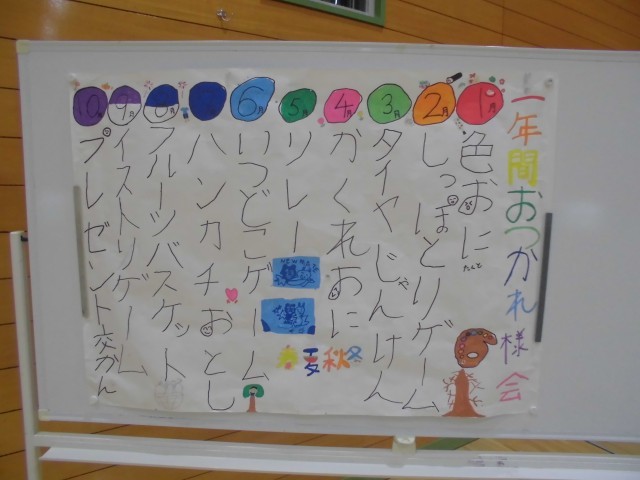 一年間おつかれ様会
1月
色おに
たくと
2月
しっぽとりゲーム
3月
タイヤじゃんけん
4月
かくれおに
5月
リレー
春夏秋冬
6月
いつどこゲーム
ハンカチおとし
8月
フルーツバスケット
9月
イストリゲーム
10月
プレゼント交かん